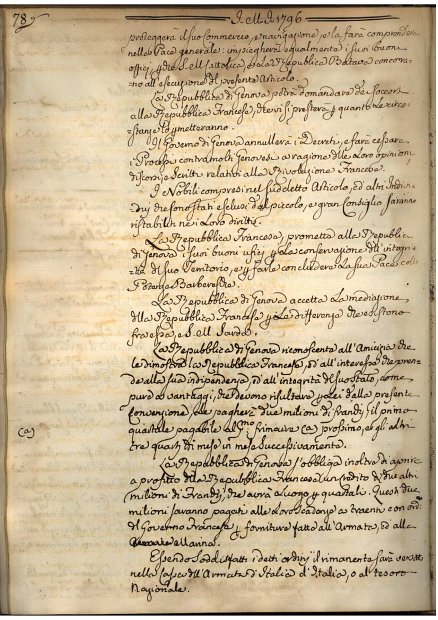 78
I.M.D. 1796
proteggerà il suo commercio, e navigazione, e la farà comprendere
nella Pace generale: impiegherà egualmente i suoi buoni
officj, perchè S. M. Cattolica e La Repubblica Batava concorra-
no all'esecuzione del presente Articolo.
La Repubblica di Genova potrà domandare de' soccorsi
alla Repubblica Francese, che vi si presterà per quanto le circo-
stanze lo permetteranno.
Il Governo di Genova annullerà i Decreti, e farà cessare
i Processi contra molti Genovesi a ragione delle Loro opinioni
discorsi, e Scritti relativi alla Rivoluzione Francese.
I Nobili compresi nel sudetto Articolo, ed altri Indivi-
dui che sono stati esclusi dal piccolo, e gran Consiglio saranno
ristabiliti ne' Loro diritti.
La Repubblica Francese, promette alla Repubblica
di Genova i suoi buoni ufficj per La conservazione dell'
del suo Territorio, e per farle concludere La sua Pace colle
Potenze Barberesche.
La Repubblica di Genova accetta La mediazione
della Repubblica Francese per Le differenze che esistono
fra essa, e S. M. Sarda.
La Repubblica di Genova riconoscente all'Amicizia che
le dimostra la Repubblica Francese, ed all'interesse che pren-
de alla sua indipendenza, ed all'integrità del suo stato, come
pure ai vantaggi, che devono risultare per lei dalla presente
Convenzione, le pagherà due milioni di franchi, il primo
quartale pagabile al primo frimaire (a) prossimo, e gli altri
(a)
tre quarti di mese in mese successivamente.
La Repubblica di Genova s'obbliga inoltre di aprire
a profitto della Repubblica Francese un credito di due altri
milioni di Franchi, che avrà luogo per quartali. Questi due
milioni saranno pagati alle Loro scadenze a traenti con ordine
del Governo Francese per forniture fatte all'Armata, ed alla
Marina.
Essendo soddisfatti i detti ordini il rimanente sarà versato
nella cassa dell'Armata d'Italia d'Italia, o al tesoro
Nazionale.